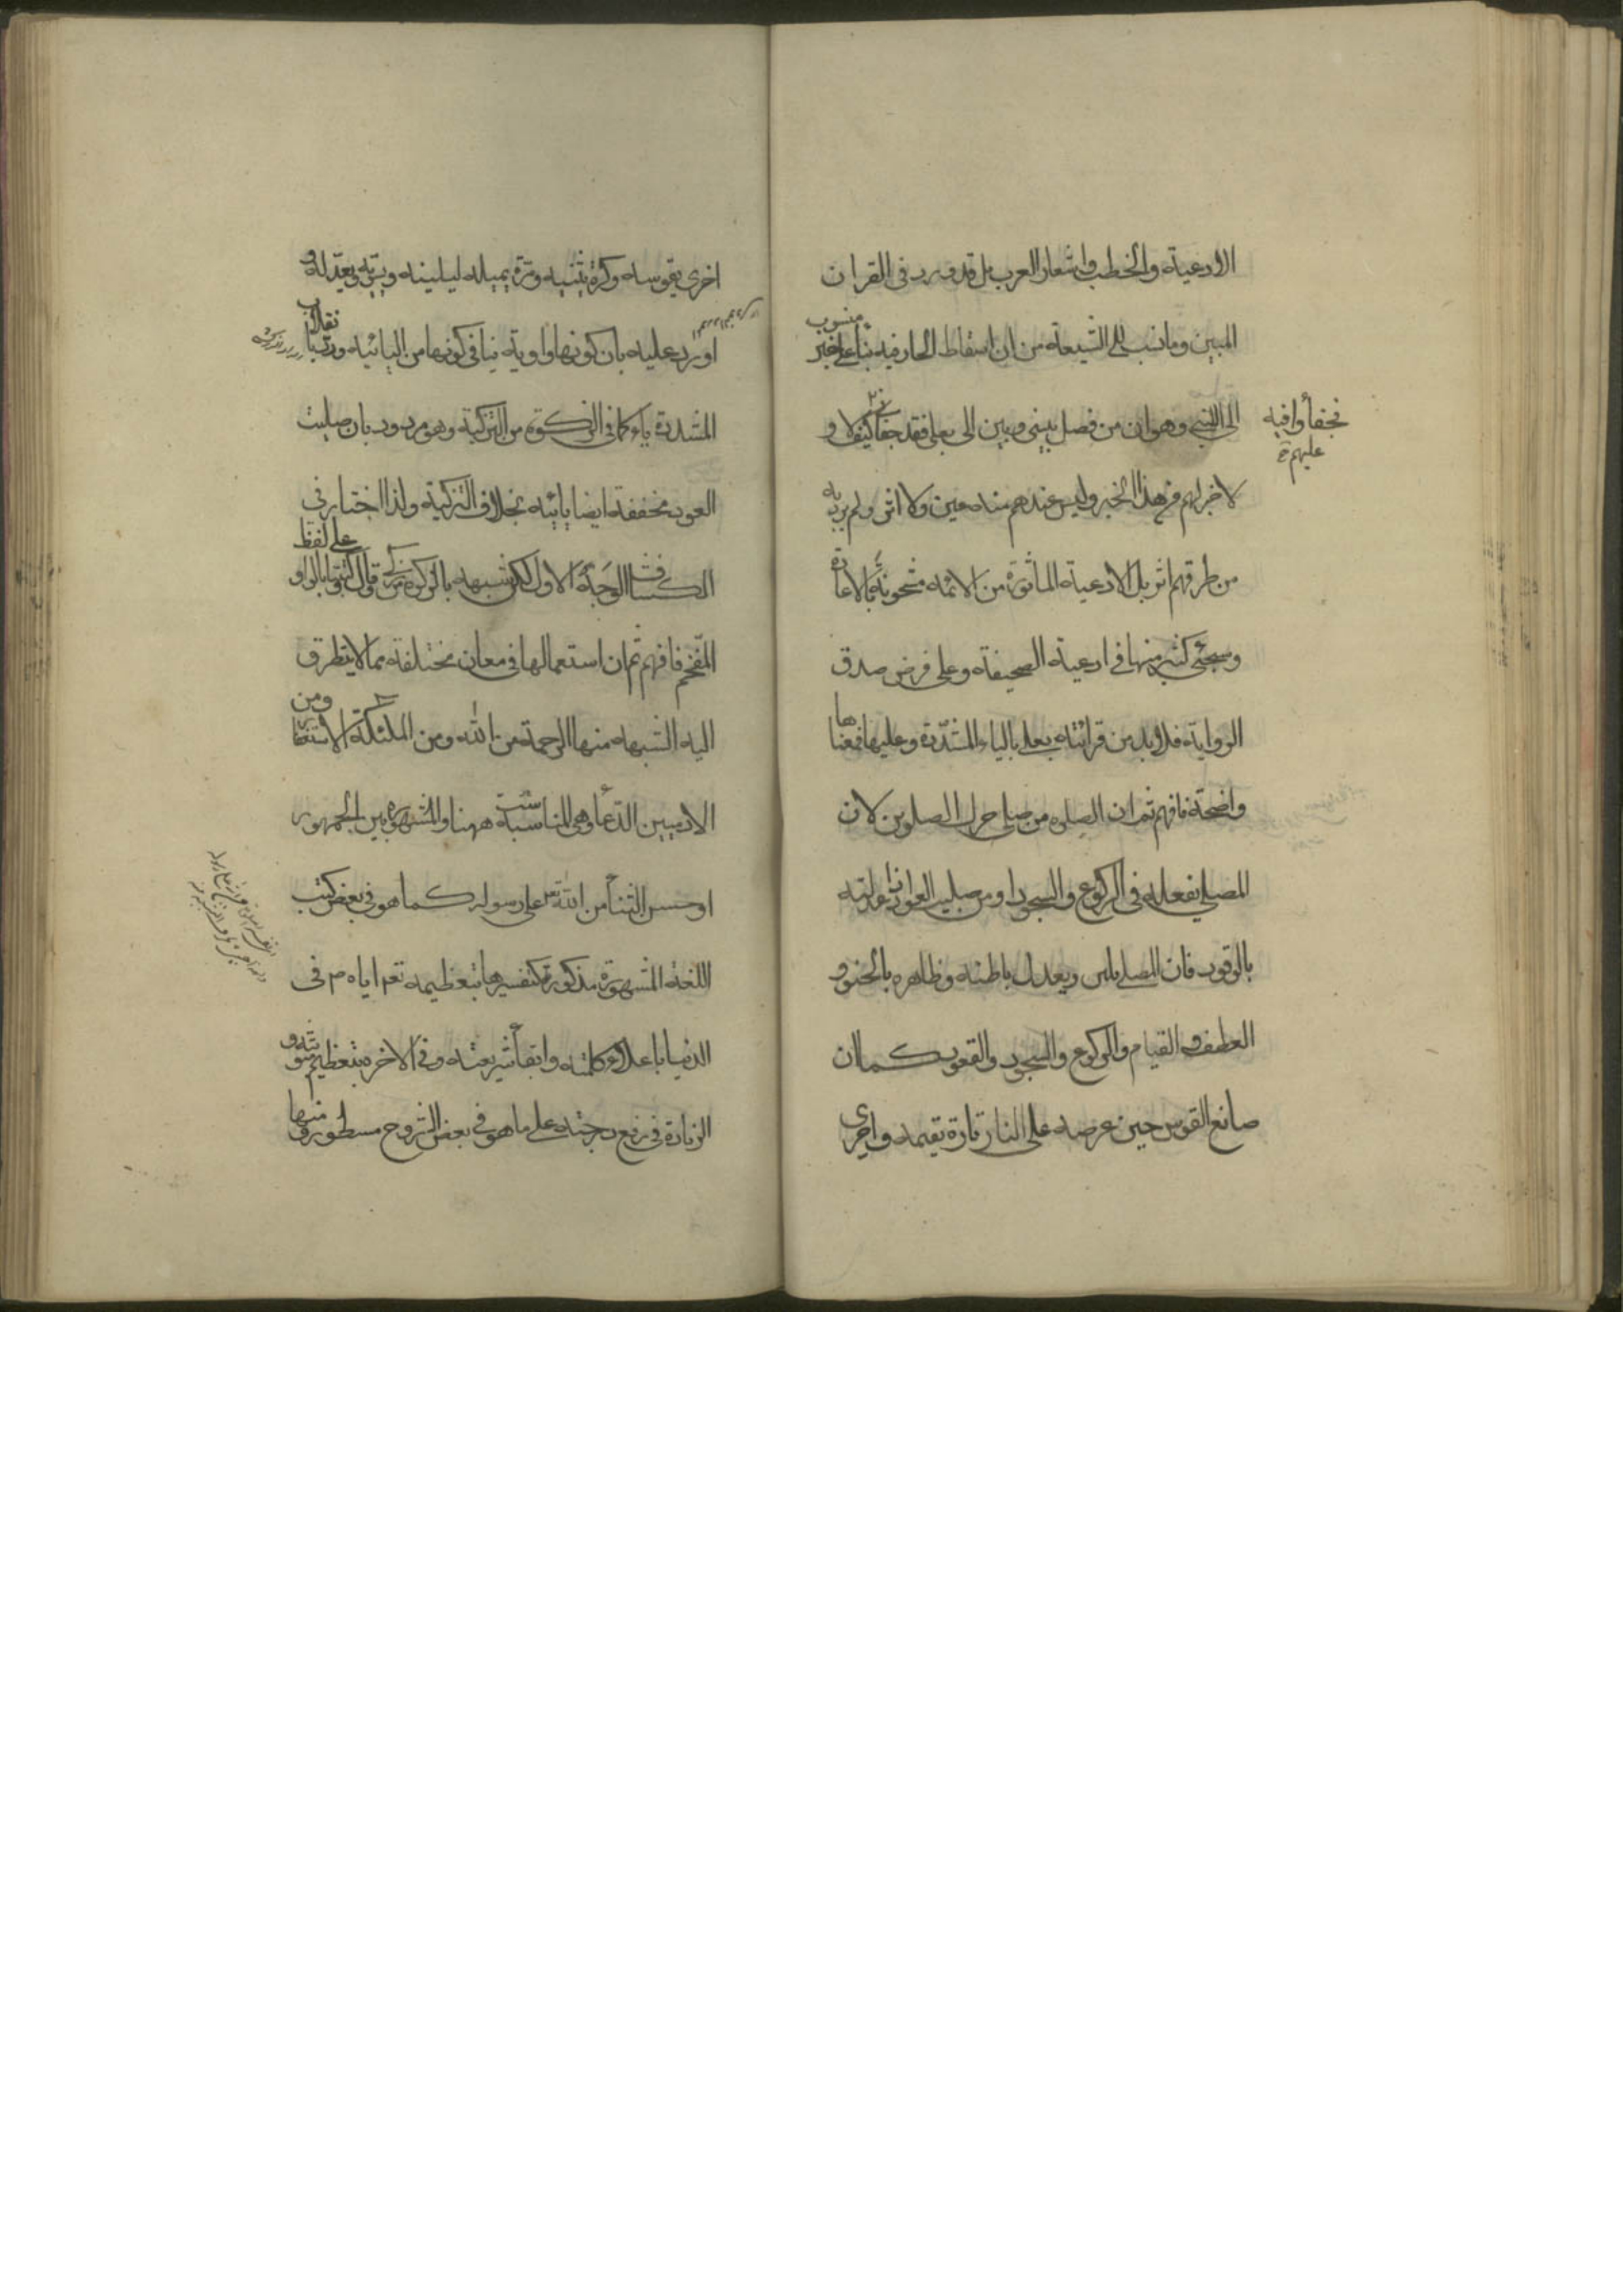 الادعية والخطب واشعار العرب بل قد ورد فى القران
المبين وما نسب الى الشيعة من ان اسقاط الجار فيه بناء على خبر
منسوب
الى النبى وهو ان من فصل بينى وبين الى بعلى فقد جفا كيف لا و
عليهم
لا خبر لهم من هذا الخبر وليس عندهم منه عين ولا اثر ولم يرد به
من طرقهم اثر بل الادعية الماثورة من الائمه مشحونة بالاعادة
وسيجئ كثير منها فى ادعية الصحيفة وعلى فرض صدق
الرواية فلا بد من قرائته بعلى بالياء المشددة وعليها فمعناها
واضحة فافهم ثم ان الصلوه من صلى حرك الصلوين لان
المصلى يفعله فى الركوع والسجود او من صليت العود اذا عدلته
بالوقود فان المصلى يلين ويعدل باطنه وظاهره بالحنو و
العطف والقيام والركوع والسجود والقعود كما ان
صانع القوس حين عرضه على النار تارة يقيمه واخرى
اخرى يقوسه وكرة يثنيه ومرة يميله ليلينه ويعدله و
اورد عليه بان كونها واوية ينافى كونها من اليائية ورد بانقلاب
المشددة ياء كما فى الزكوة من التزكية وهو مردود بان صليت
العود مخففة ايضا يائيه بخلاف التزكية ولذا اختار فى
الكشاف الوجه الاول لكن شبهه بالزكوة من زكى وقال كتبوها بالواو
على لفظ
المفخم فافهم ثم ان استعمالها فى معان مختلفة مما لا يتطرق
اليه الشبهه منها الرحمة من الله ومن الملئكة الاستغفار ومن
الادميين الدعا وهى المناسبة ههنا والمشهوره بين الجمهور
او حسن الثنأ من الله على رسوله كما هو فى بعض كتب
اللغة المشهورة مذكورة كتفسيرها بتعظيمه تعم اياه ص فى
الدنيا باعلاء كلمته وابقأ شريعته وفى الاخره بتعظيم مثوبته و
الزيادة فى رفع درجته على ما هو فى بعض الشروح مسطور ومنها